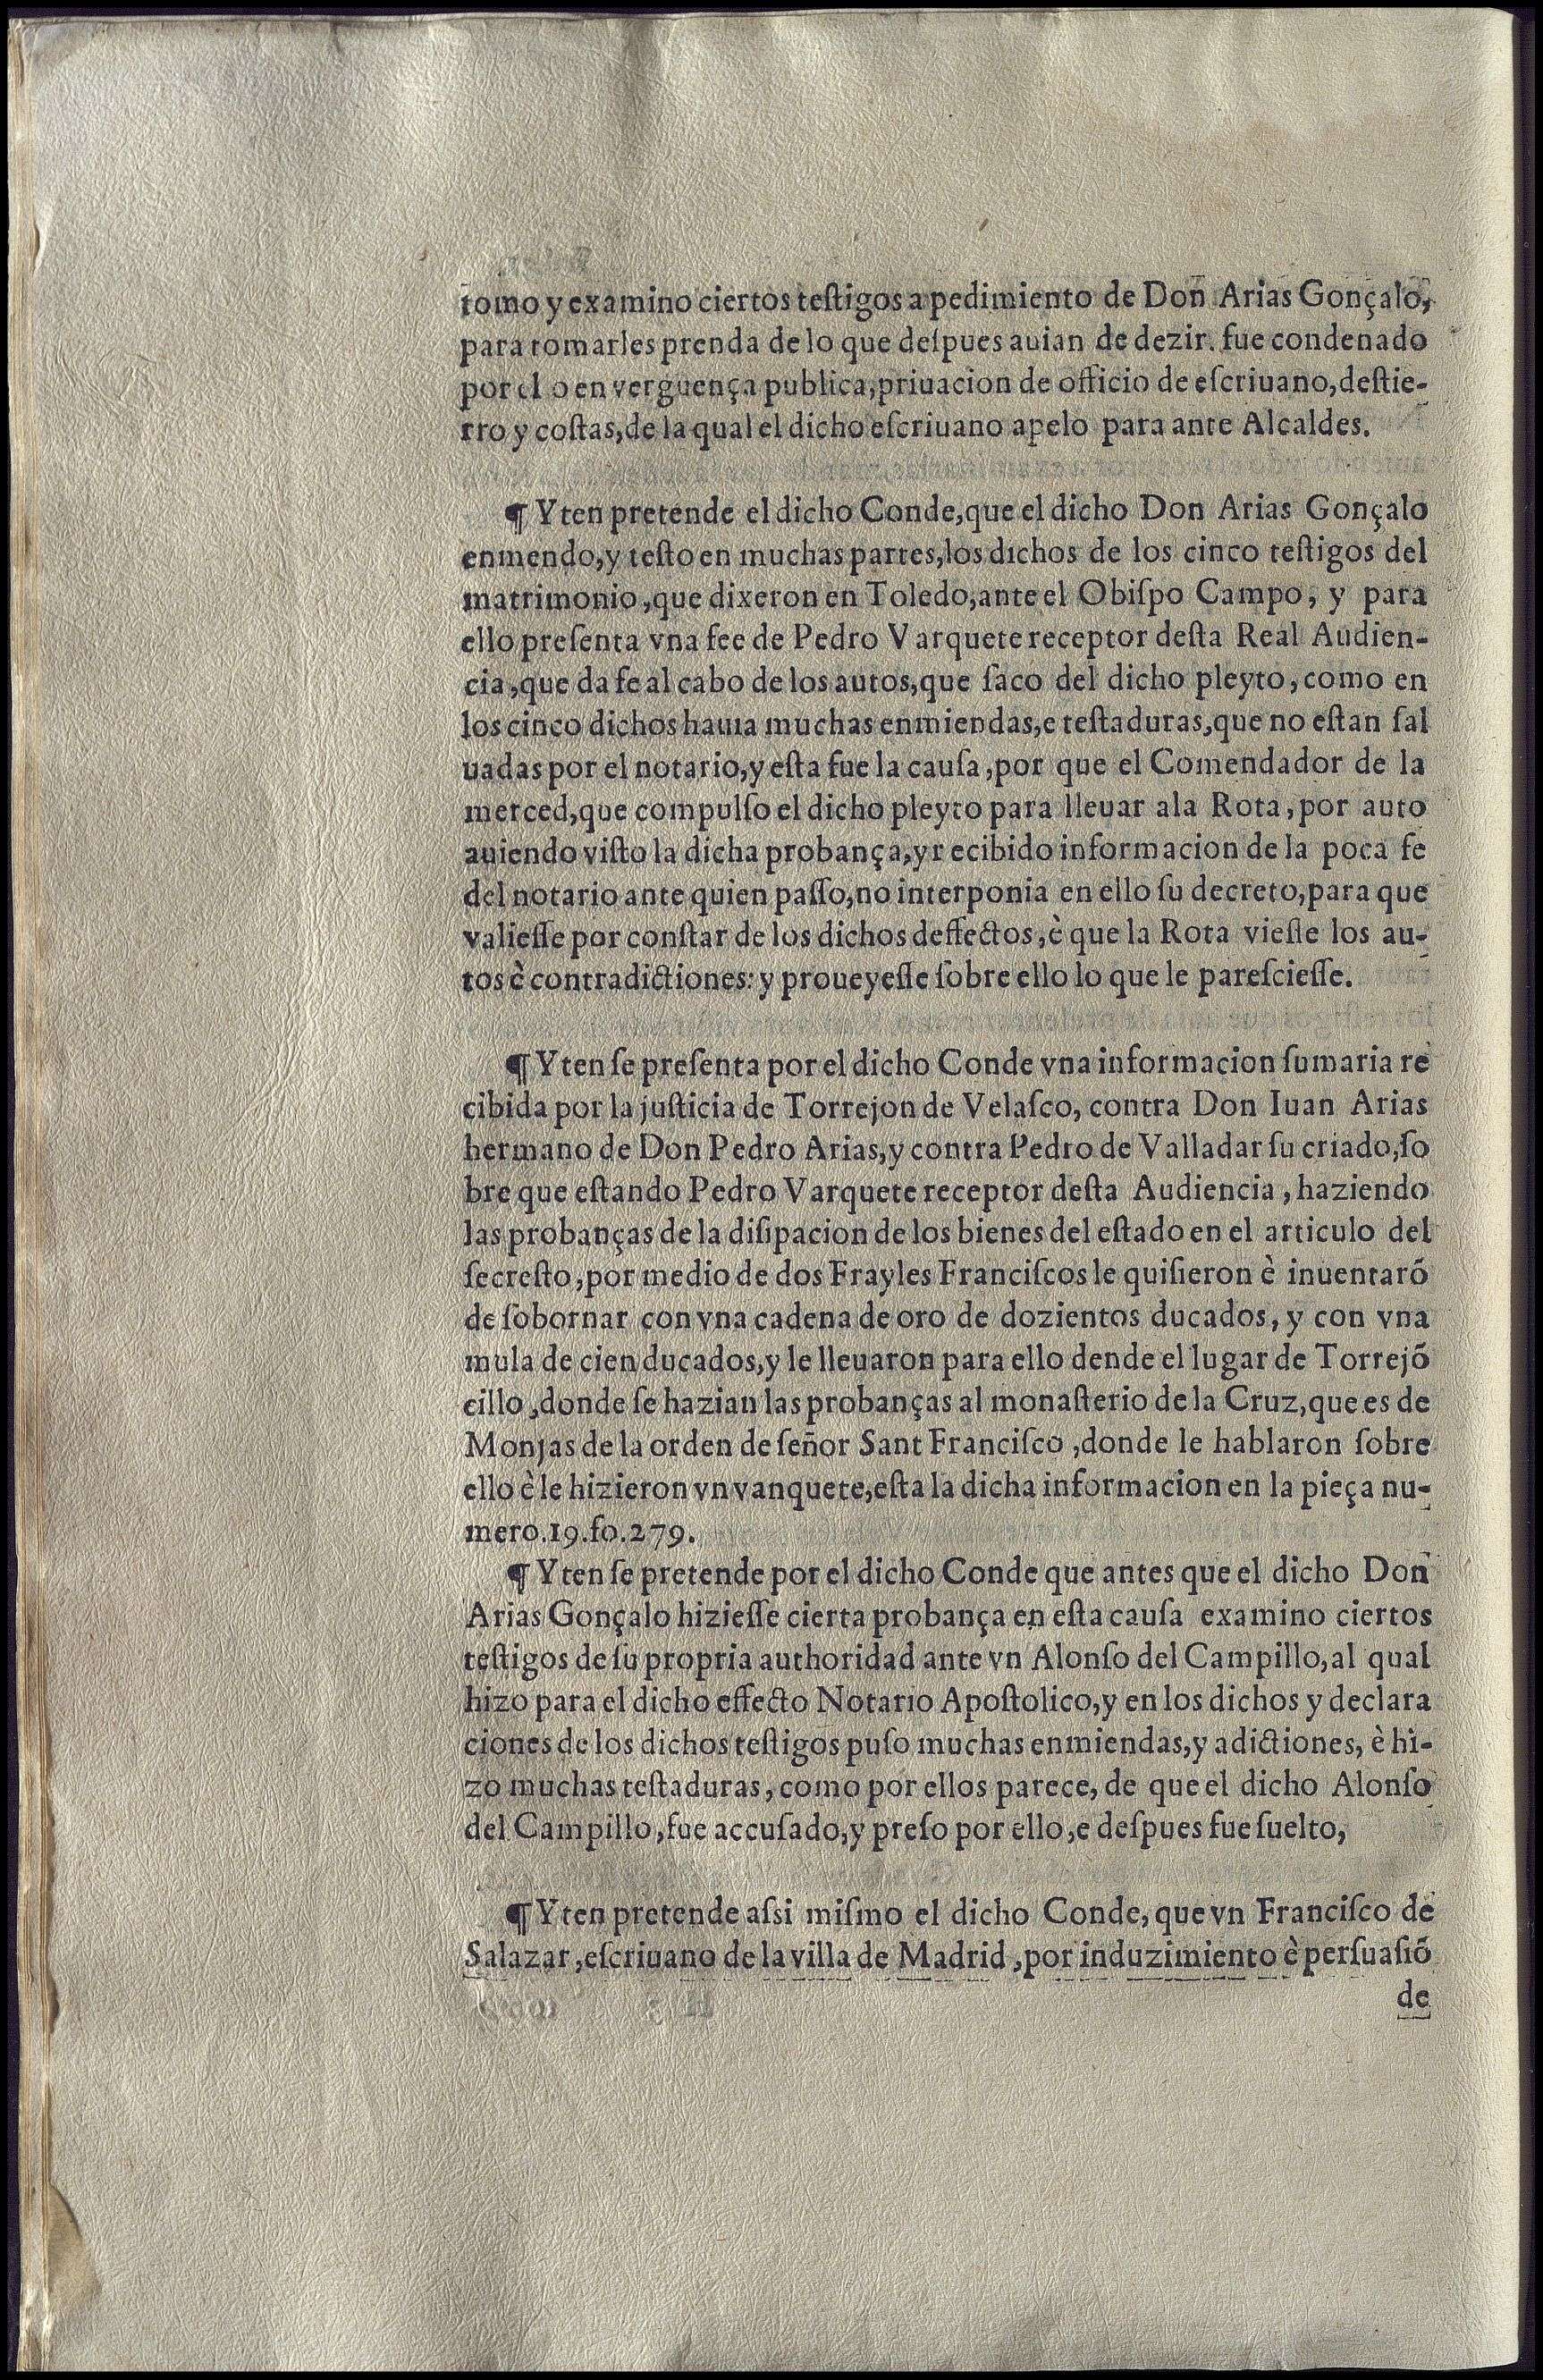 tomo y examino ciertos teſtigos a pedimiento de Don Arias Gonçalo,
para tomarles prenda de lo que deſpues auian de dezir. fue condenado
por el o en verguença publica, priuacion de officio de eſcriuano, deſtie-
rro y coſtas, de la qual el dicho eſcriuano apelo para ante Alcaldes.
¶ Yten pretende el dicho Conde, que el dicho Don Arias Gonçalo
enmendo, y teſto en muchas partes, los dichos de los cinco teſtigos del
matrimonio, que dixeron en Toledo, ante el Obiſpo Campo, y para
ello preſenta vna fee de Pedro Varquete receptor deſta Real Audien-
cia, que da fe al cabo de los autos, que ſaco del dicho pleyto, como en
los cinco dichos hauia muchas enmiendas, e teſtaduras, que no eſtan ſal
uadas por el notario, y eſta fue la cauſa, por que el Comendador de la
merced, que compulſo el dicho pleyto para lleuar ala Rota, por auto
auiendo viſto la dicha probança, y recibido informacion de la poca fe
del notario ante quien paſſo, no interponia en ello ſu decreto, para que
valieſſe por conſtar de los dichos deffectos, è que la Rota vieſſe los au-
tos è contradictiones: y proueyeſſe ſobre ello lo que le pareſcieſſe.
¶ Yten ſe preſenta por el dicho Conde vna informacion ſumaria re
cibida por la juſticia de Torrejon de Velaſco, contra Don Iuan Arias
hermano de Don Pedro Arias, y contra Pedro de Valladar ſu criado, ſo
bre que eſtando Pedro Varquete receptor deſta Audiencia, haziendo
las probanças de la diſipacion de los bienes del eſtado en el articulo del
ſecreſto, por medio de dos Frayles Franciſcos le quiſieron è inuentaró
de ſobornar con vna cadena de oro de dozientos ducados, y con vna
mula de cien ducados, y le lleuaron para ello dende el lugar de Torrejó
cillo, donde ſe hazian las probanças al monaſterio de la Cruz, que es de
Monjas de la orden de ſeñor Sant Franciſco, donde le hablaron ſobre
ello è le hizieron vn vanquete, eſta la dicha informacion en la pieça nu-
mero.19.fo.279.
¶ Yten ſe pretende por el dicho Conde que antes que el dicho Don
Arias Gonçalo hizieſſe cierta probança en eſta cauſa examino ciertos
teſtigos de ſu propria authoridad ante vn Alonſo del Campillo, al qual
hizo para el dicho effecto Notario Apoſtolico, y en los dichos y declara
ciones de los dichos teſtigos puſo muchas enmiendas, y adictiones, è hi-
zo muchas teſtaduras, como por ellos parece, de que el dicho Alonſo
del Campillo, fue accuſado, y preſo por ello, e deſpues fue ſuelto,
¶ Yten pretende aſsi miſmo el dicho Conde, que vn Franciſco de
Salazar, eſcriuano de la villa de Madrid, por induzimiento è perſuaſió
de